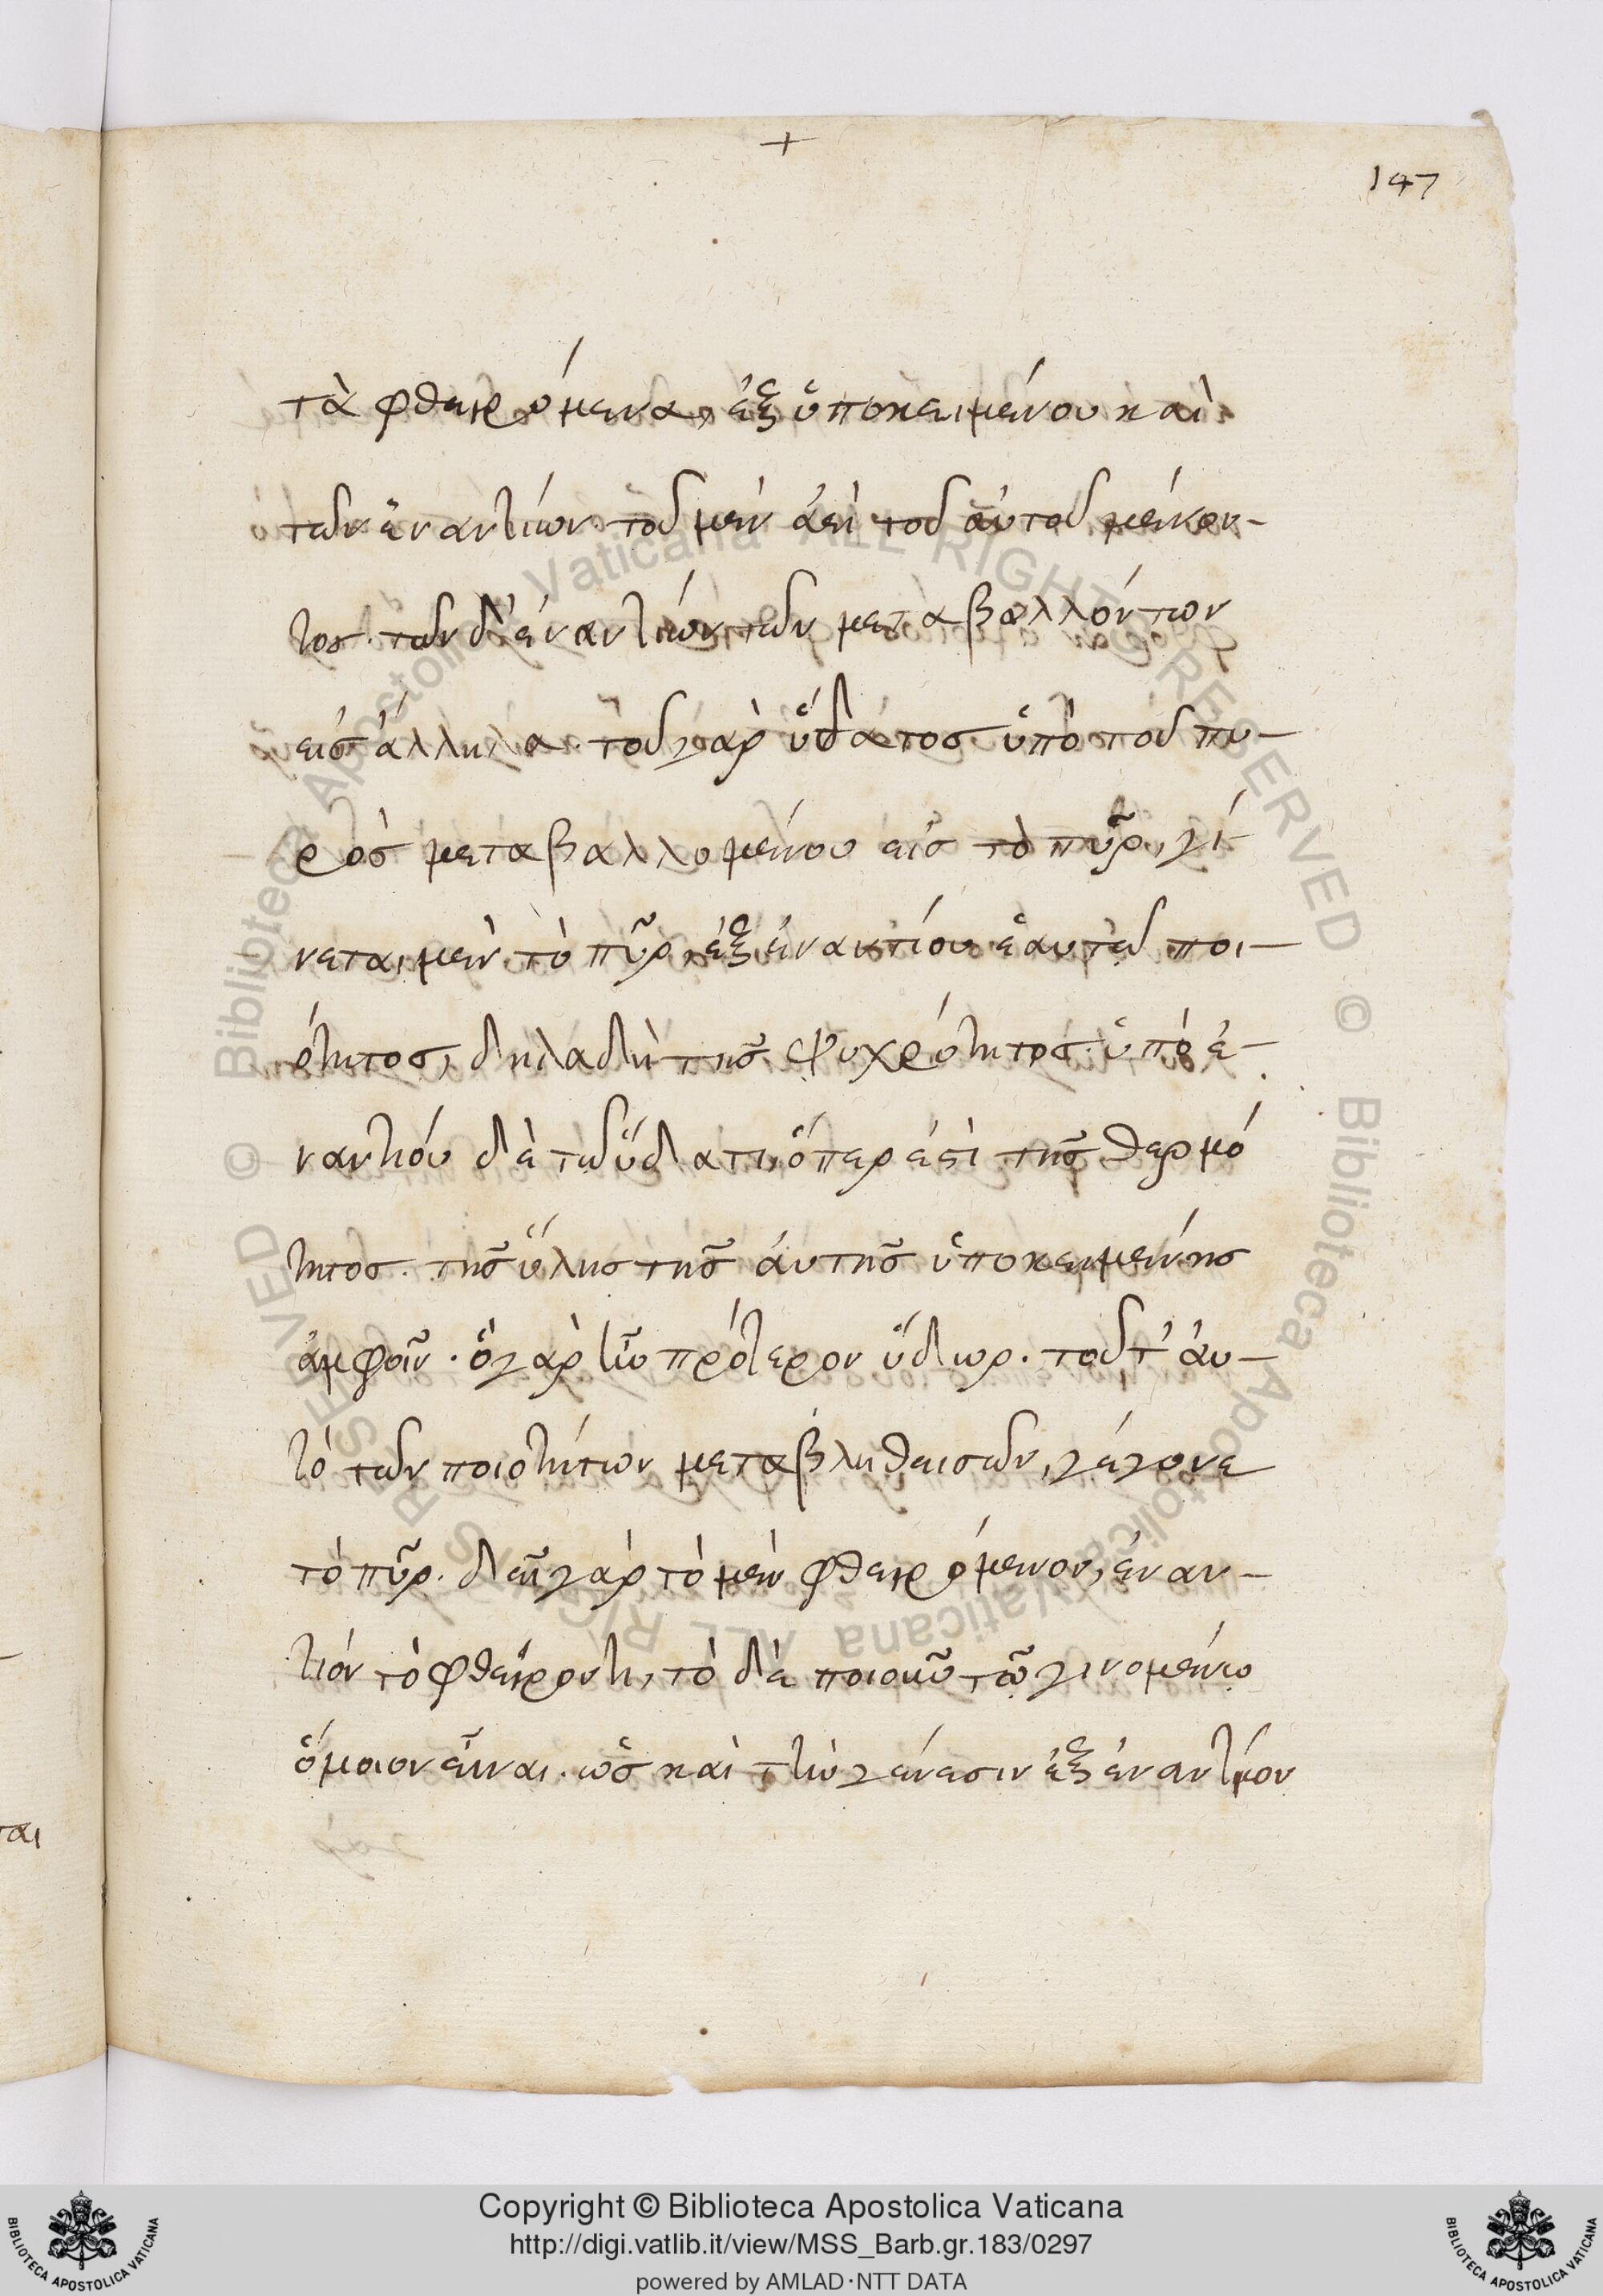 +
147
τὰ φθειρόμενα, ἐξ ὑποκειμένου καὶ
τῶν ἐναντίων· τοῦ μὲν ἀεὶ τοῦ αὐτοῦ μένον-
τος· τῶν δ' ἐναντίων τῶν μεταβαλλόντων
εἰς ἄλληλα· τοῦ γὰρ ὕδατος ὑπὸ τοῦ πυ-
ρὸς μεταβαλλομένου εἰς τὸ πῦρ, γί
νεται μὲν τὸ πῦρ, ἐξ ἐναντίου ἑαυτῶ ποι-
ότητος, δηλαδὴ τῆς ψυχρότητος· ὑπὸ ἐ-
ναντίου δὲ τῶ ὕδατι, ὅπερ ἐστὶ τῆς θερμό
τητος. τῆς ὕλης τῆς ἀυτῆς ὑποκειμένης
ἀμφοῖν. ὃ γὰρ ἦν πρότερον ὕδωρ. τοῦτ' ἀυ-
τὸ τῶν ποιοτήτων μεταβληθεισῶν, γέγονε
τὸ πῦρ. δεῖ γὰρ τὸ μὲν φθειρόμενον, ἐναν-
τίον τὸ φθείροντι, τὸ δὲ ποιοῦν τῶ γινομένω
ὅμοιον εἶναι. ὡς καὶ τὴν γένεσιν ἐξ ἐναντίου
ται
Copyright © Biblioteca Apostolica Vaticana
http://digi.vatlib.it/view/MSS_Barb.gr.183/0297
powered by AMLAD·NTT DATA
BIBLIOTECA APOSTOLICA VATICANA
BIBLIOTECA APOSTOLICA VATICANA
© Biblioteca Apostolica Vaticana ALL RIGHTS RESERVED
© Biblioteca Apostolica Vaticana ALL RIGHTS RESERVED